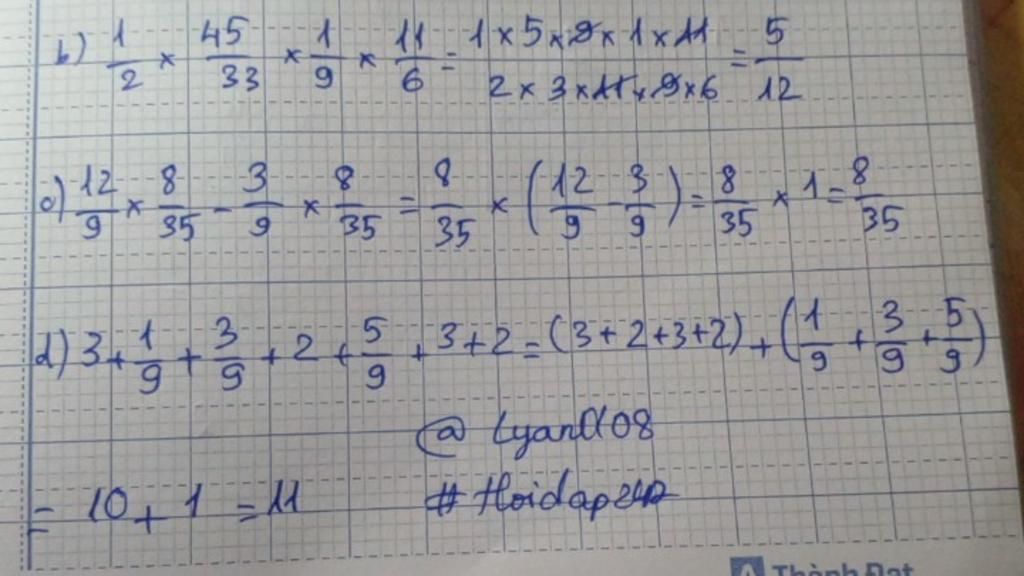 b) 1/2 × 45/33 × 1/9 × 11/6 = 1×5×9×1×11 / 2×3×11×9×6 = 5/12
c) 12/9 × 8/35 - 3/9 × 8/35 = 8/35 × (12/9 - 3/9) = 8/35 × 1 = 8/35
d) 3 + 1/9 + 3/9 + 2 + 5/9 + 3 + 2 = (3 + 2 + 3 + 2) + (1/9 + 3/9 + 5/9)
= 10 + 1 = 11
#Hoidap247
Thành Đạt